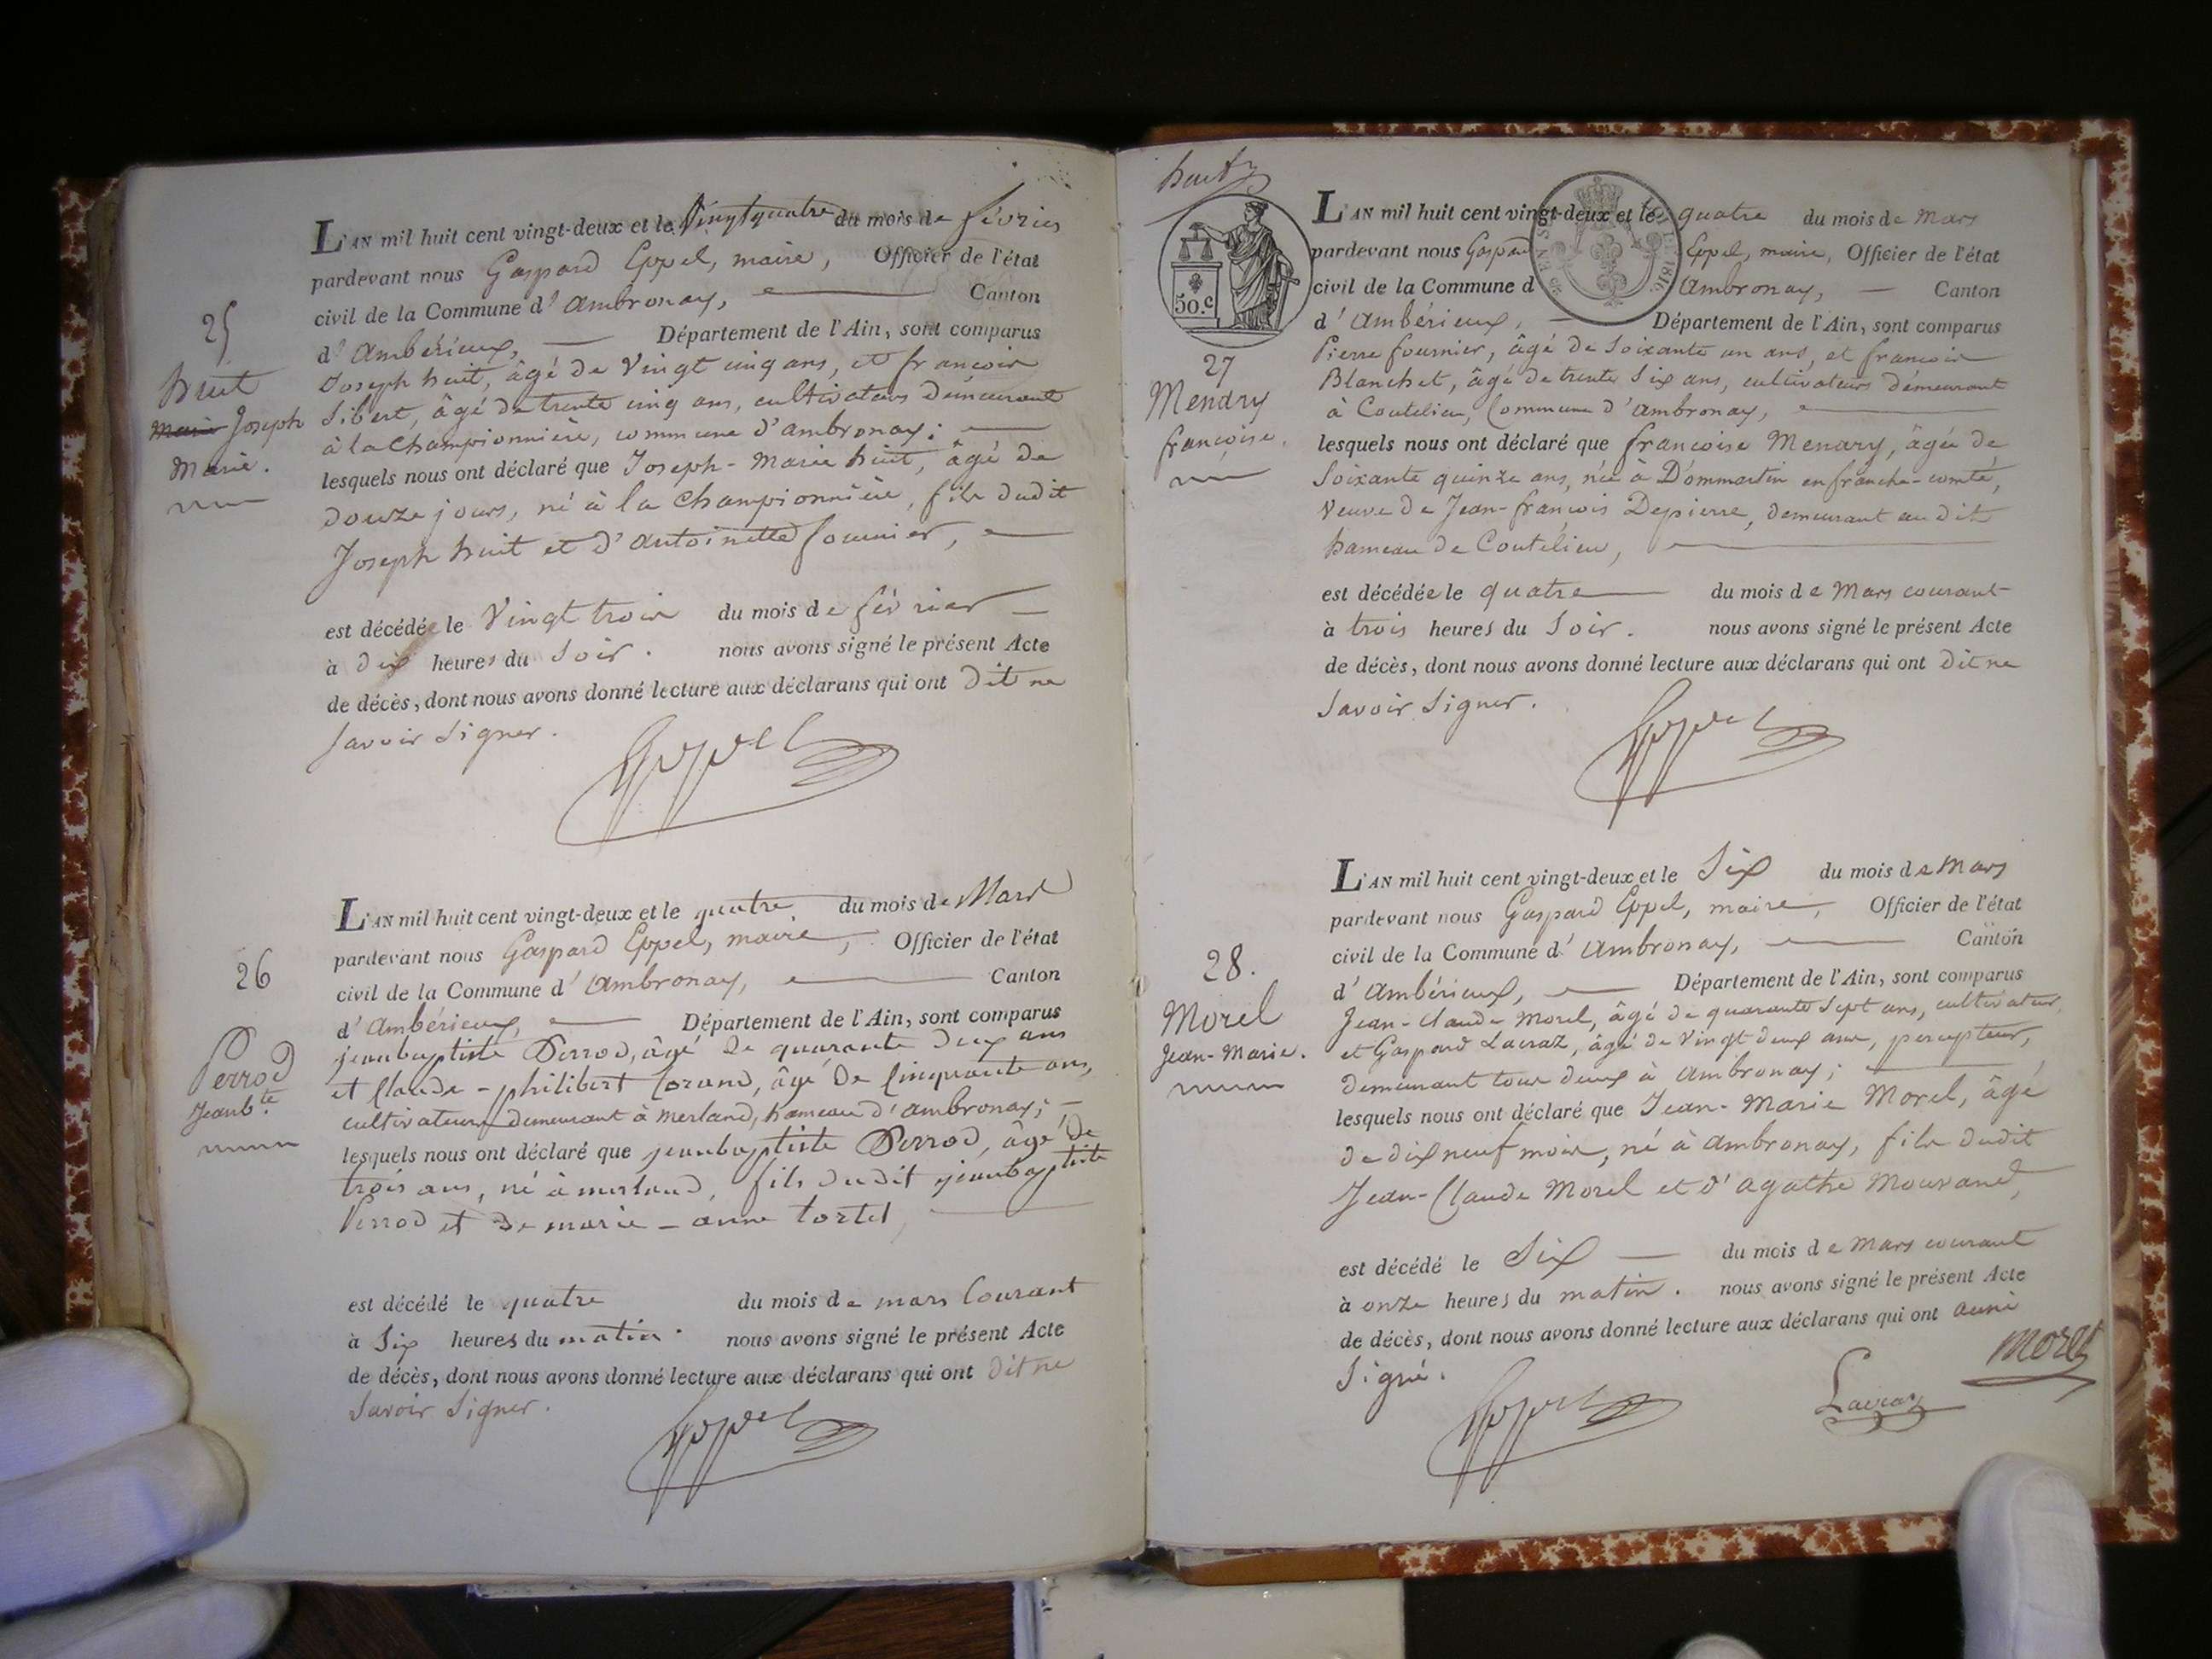 L'AN mil huit cent vingt-deux et le Vingtquatre du mois de février
pardevant nous Gaspard Eppel, maire, Officier de l'état
civil de la Commune d'Ambronay, Canton
d'Ambérieux, Département de l'Ain, sont comparus
25
huit
Joseph
Marie.
Joseph huit, âgé de Vingt cinq ans, et francois
Sibert, âgé de trente cinq ans, cultivateurs demeurant
à la Championnière, commune d'ambronay;
lesquels nous ont déclaré que Joseph-Marie huit, âgé de
douze jours, né à la Championnière, fils dudit
Joseph huit et d'antoinette fournier,
est décédé le Vingt trois du mois de février
à dix heures du Soir. nous avons signé le présent Acte
de décès, dont nous avons donné lecture aux déclarans qui ont dit ne
Savoir Signer.
Eppel
26
Perrod
Jeanbte.
L'AN mil huit cent vingt-deux et le quatre du mois de Mars
pardevant nous Gaspard Eppel, maire, Officier de l'état
civil de la Commune d'Ambronay, Canton
d'Ambérieux, Département de l'Ain, sont comparus
jeanbaptiste Perrod, âgé de quarante deux ans
et Claude-philibert Corand, âgé de Cinquante ans,
cultivateurs demeurant à merland, hameau d'ambronay;
lesquels nous ont déclaré que jeanbaptiste Perrod, âgé de
trois ans, né à merland, fils dudit jeanbaptiste
Perrod et de marie-anne tortel,
est décédé le quatre du mois de mars Courant
à Six heures du matin. nous avons signé le présent Acte
de décès, dont nous avons donné lecture aux déclarans qui ont dit ne
Savoir Signer.
Eppel
huit
50.c
1816
27
Mendry
francoise.
L'AN mil huit cent vingt-deux et le quatre du mois de Mars
pardevant nous Gaspard Eppel, maire, Officier de l'état
civil de la Commune d Ambronay, Canton
d'Ambérieux, Département de l'Ain, sont comparus
Pierre fournier, âgé de Soixante un ans, et francois
Blanchet, âgé de trente Six ans, cultivateurs démeurant
à Coutelieu, Commune d'ambronay,
lesquels nous ont déclaré que francoise Mendry, âgée de
Soixante quinze ans, née à Dommartin en franche-comté,
Veuve de Jean-francois Depierre, demeurant au dit
hameau de Coutelieu,
est décédée le quatre du mois de Mars courant
à trois heures du Soir. nous avons signé le présent Acte
de décès, dont nous avons donné lecture aux déclarans qui ont dit ne
Savoir Signer.
Eppel
28.
Morel
Jean-Marie.
L'AN mil huit cent vingt-deux et le Six du mois de Mars
pardevant nous Gaspard Eppel, maire, Officier de l'état
civil de la Commune d'Ambronay, Canton
d'Ambérieux, Département de l'Ain, sont comparus
Jean-Claude Morel, âgé de quarante Sept ans, cultivateur
et Gaspard Lacraz, âgé de Vingt deux ans, percepteur,
demeurant tous deux à Ambronay;
lesquels nous ont déclaré que Jean-Marie Morel, âgé
de dix neuf mois, né à Ambronay, fils dudit
Jean-Claude Morel et d'agathe Mourand,
est décédé le Six du mois de Mars courant
à onze heures du matin. nous avons signé le présent Acte
de décès, dont nous avons donné lecture aux déclarans qui ont aussi
Signé.
Morel
Eppel
Lacraz